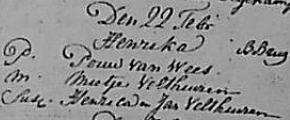 Den 22 Feb:
Henrika B:Brug
P. Pouw van Wees.
m. Metje Velthuren
Susc. Henrica en Jas Velthuren